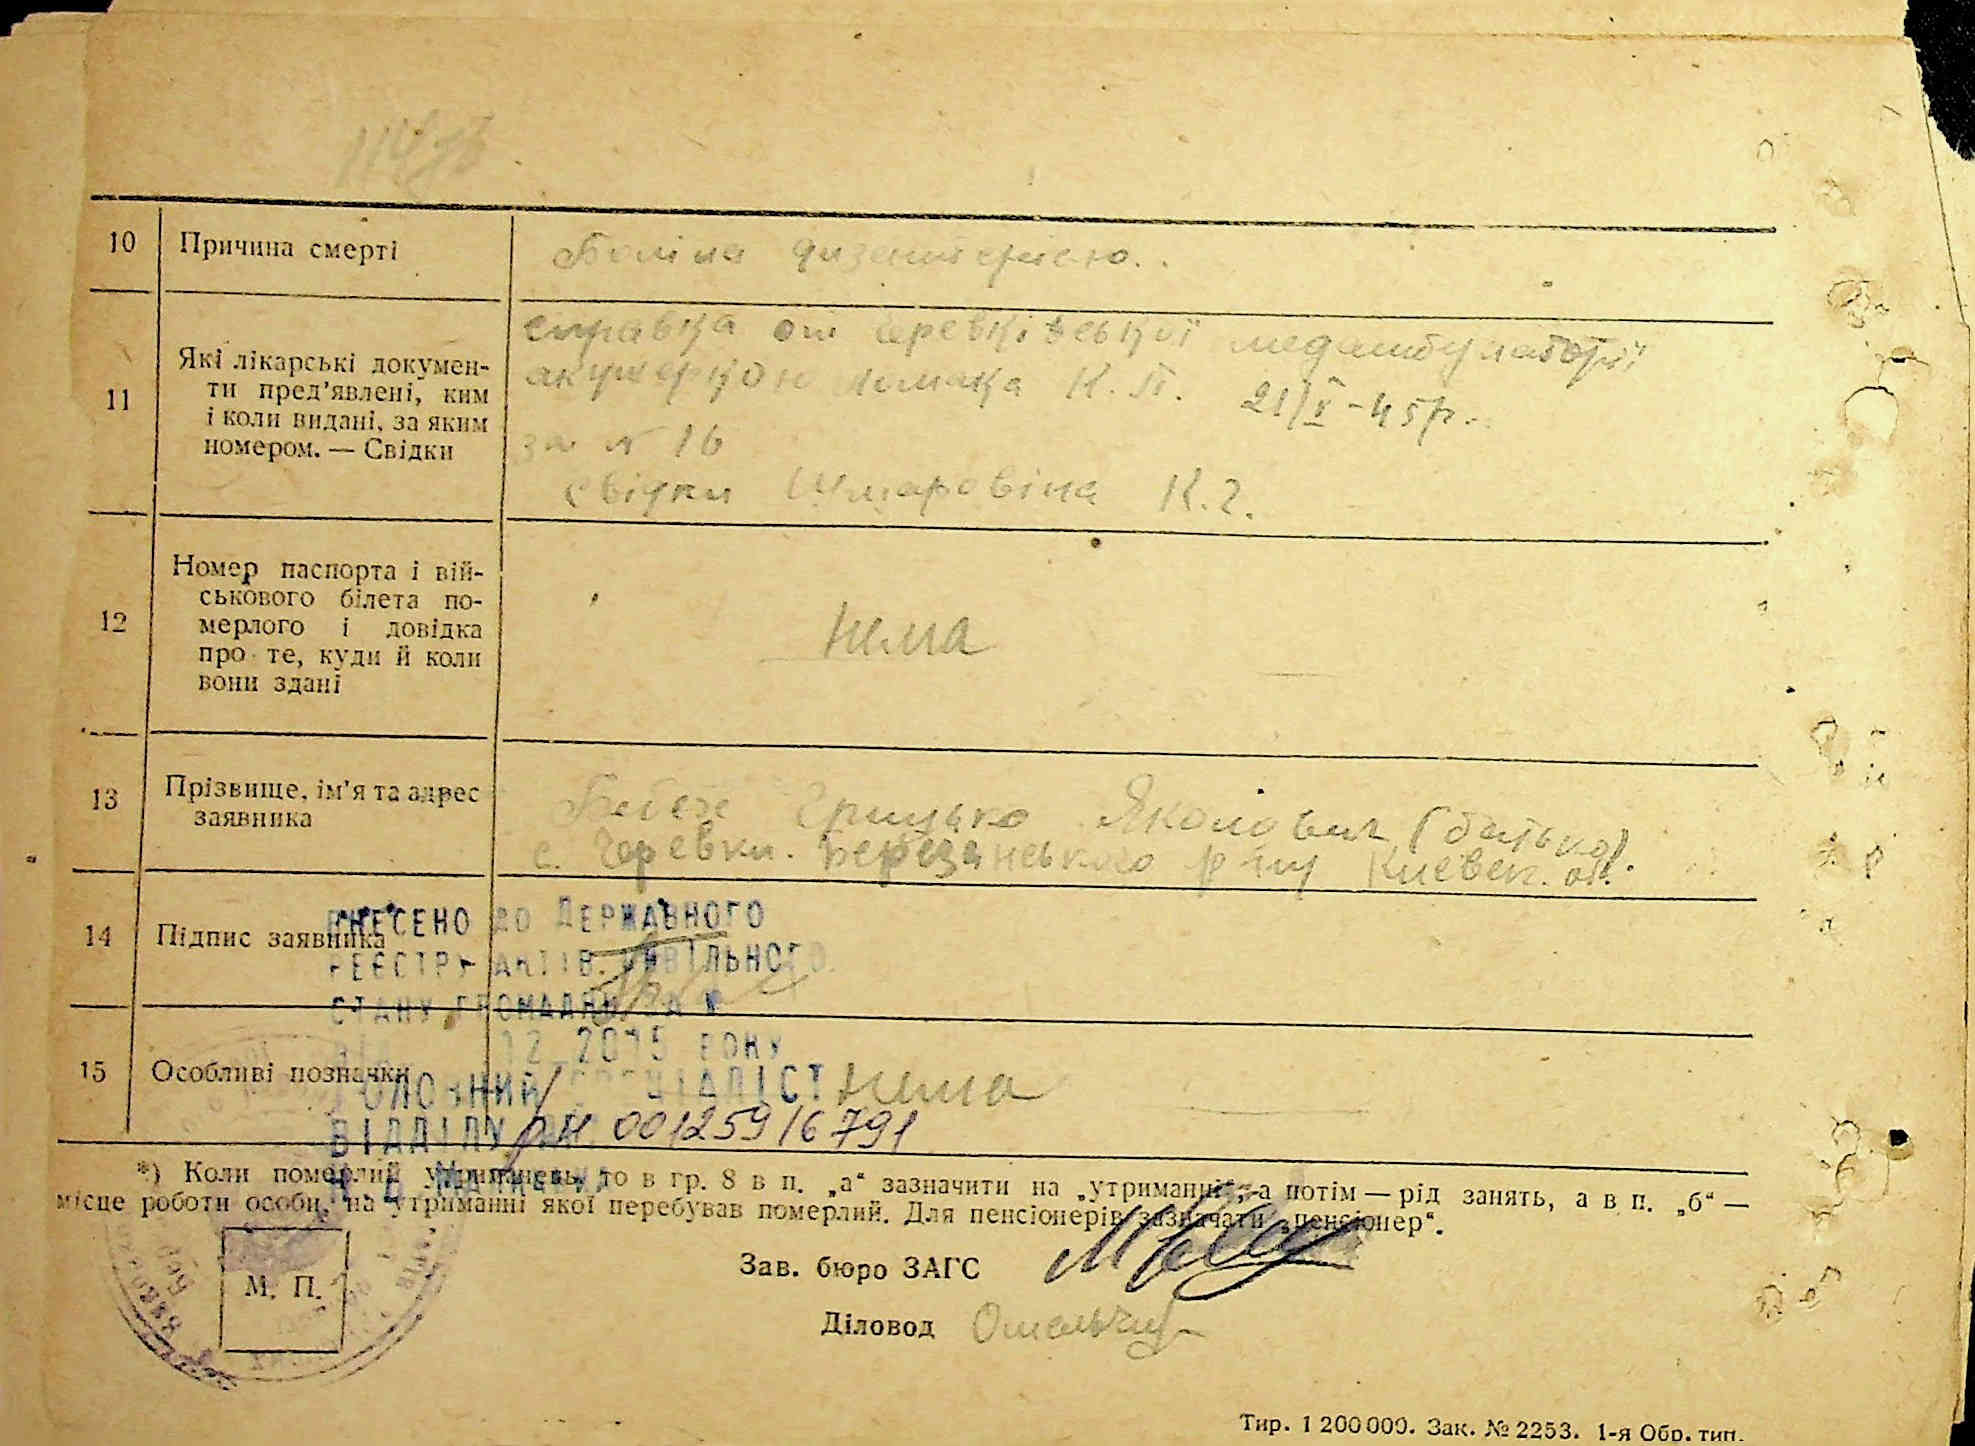 10 Причина смерті
Боліла дизентерією.
11 Які лікарські докумен-
ти пред'явлені, ким
і коли видані, за яким
номером. — Свідки
справка от Черевківської медамбулаторії
акушеркою К. П. 21/V - 45 р.
за № 16
свідки Шмаровіна К. Г.
12 Номер паспорта і вій-
ськового білета по-
мерлого і довідка
про те, куди й коли
вони здані
нема
13 Прізвище, ім'я та адрес
заявника
Грицько Якович (батько).
с. Черевки. Березанського р-ну Киевск. об.
14 Підпис заявника
ВНЕСЕНО ДО ДЕРЖАВНОГО
РЕЄСТРУ АКТІВ ЦИВІЛЬНОГО
СТАНУ ГРОМАДЯН ЗА №
12 2015 РОКУ
15 Особливі позначки
нема
ГОЛОВНИЙ СПЕЦІАЛІСТ
ВІДДІЛУ
00125916791
*) Коли померлий утриманець, то в гр. 8 в п. „а“ зазначити на „утриманні“, а потім — рід занять, а в п. „б“ —
місце роботи особи, на утриманні якої перебував померлий. Для пенсіонерів зазначати „пенсіонер“.
М. П.
Зав. бюро ЗАГС
Діловод
Тир. 1 200 000. Зак. № 2253. 1-я Обр. тип.